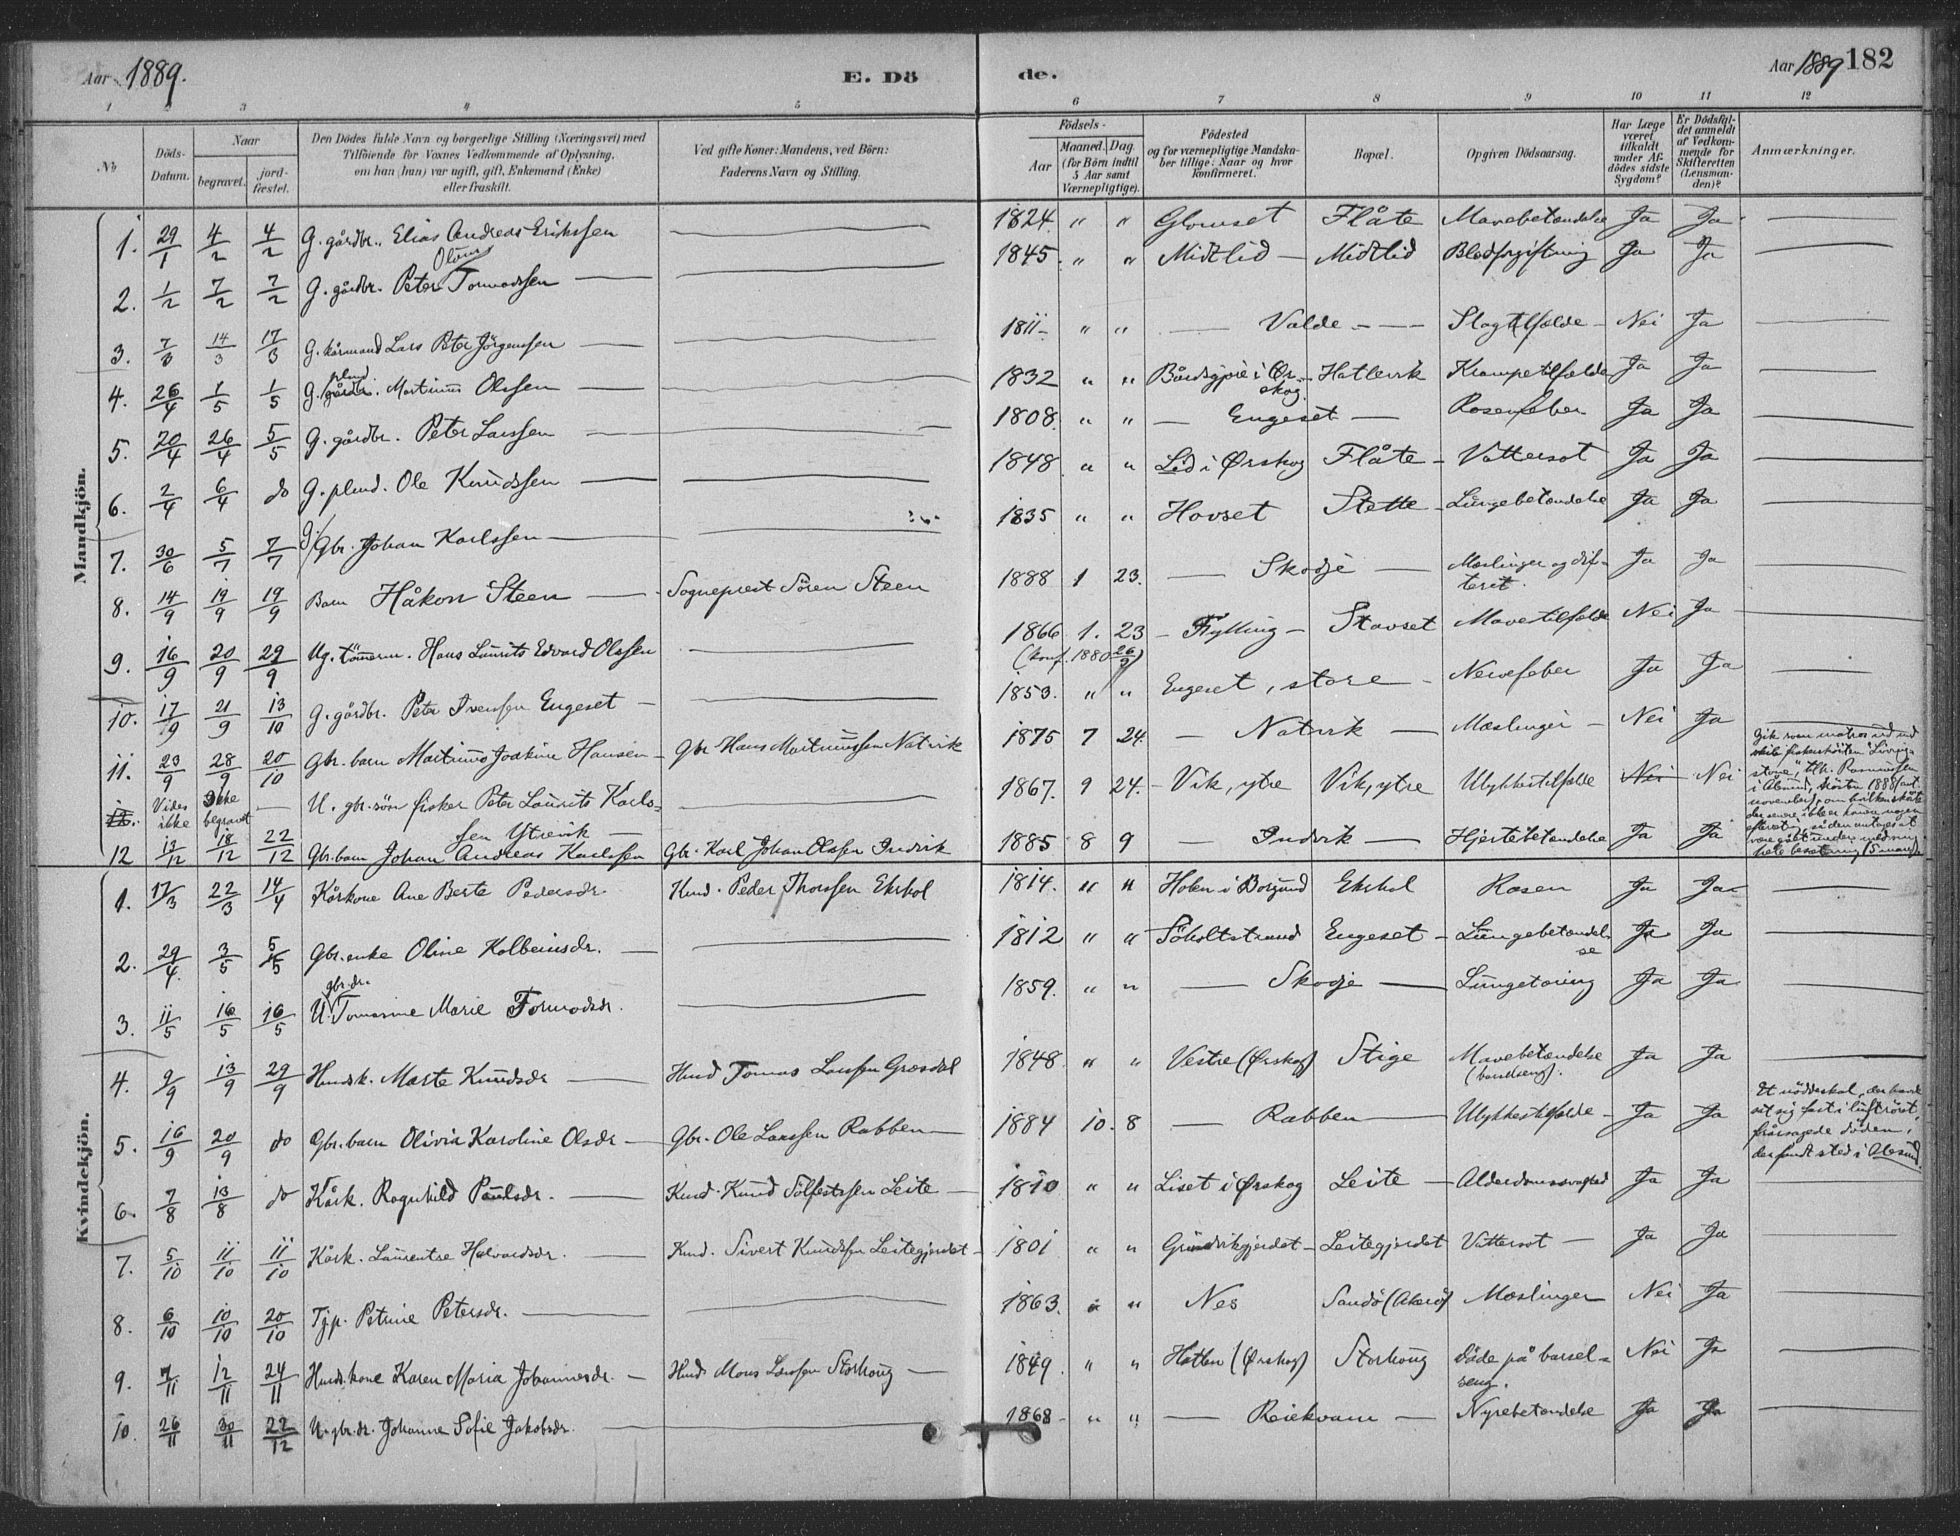 Aar 1889.
E. Dö
de.
Aar 1889 182
1 2 3 4 5 6 7 8 9 10 11 12
No
Döds-Datum.
Naar
begravet.
jord-fæstet.
Den Dödes fulde Navn og borgerlige Stilling (Næringsvei) med
Tilföiende for Voxnes Vedkommende af Oplysning,
om han (hun) var ugift, gift, Enkemand (Enke)
eller fraskilt.
Ved gifte Koner: Mandens, ved Börn:
Faderens Navn og Stilling.
Födsels-
Aar
Maaned. Dag
(for Börn indtil
5 Aar samt
Værnepligtige).
Födested
og for værnepligtige Mandska-
ber tillige: Naar og hvor
konfirmeret.
Bopæl.
Opgiven Dödsaarsag.
Har Læge
været
tilkaldt
under Af-
dödes sidste
Sygdom?
Er Dödsfal-
det anmeldt
af Vedkom-
mende for
Skifteretten
(Lensman-
den)?
Anmærkninger.
Mandkjön.
1. 29/1 4/2 4/2 G. gårdbr. Elias Andreas Erikssen 1824. " " Glomset Flåte Mavebetændelse Ja Ja
Olaus
2. 1/2 7/2 7/2 G. gårdbr. Peter Tormodssen 1845. " " Midtlid Midtlid Blodforgiftning Ja Ja
3. 7/3 14/3 17/3 G. kårmand Lars Peter Jörgenssen 1811 " " Valde Slagtilfælde Nei Ja
plmd
4. 26/4 1/5 1/5 G. gårdr. Martinus Olssen 1832 " " Bårdsgjære i Ør-
skog. Hatlevik Krampetilfælde Ja Ja
5. 20/4 26/4 5/5 G. gårdbr. Peter Larssen 1808. " " Engeset Rosenfeber Ja Ja
6. 2/4 6/4 do G. plmd. Ole Knudssen 1848 " " Lid i Ørskog Flåte Vattersot Ja Ja
7. 30/6 5/7 7/7 G. Gbr. Johan Karlssen 1835 " " Hovset Stette Lungebetændelse Ja Ja
8. 14/9 19/9 19/9 Barn Håkon Steen Sogneprest Sören Steen 1888 1 23. Skodje Mæslinger og dif-
terit. Ja Ja
9. 16/9 20/9 29/9 Ug. tömerm. Hans Laurits Edvard Olssen 1866 1. 23 Fylling Stavset Mavetilfælde Nei Ja
(konf. 1880 26/9)
10. 17/9 21/9 13/10 G. gårdbr. Peter Iverssen Engeset 1853. " " Engeset, store Nervefeber Ja Ja
11. 23/9 28/9 20/10 Gbr. barn Martinus Joakim Hansen Gbr. Hans Martinussen Natvik 1875 7 24. Natvik Mæslinger Nei Ja
12. Vides ikke Ikke begravet U. gbr. sön fisker Peter Laurits Karls-
sen Ytrevik 1867. 9 24. Vik, ytre Vik, ytre Ulykkestilfælde Nei Nei
12 13/12 18/12 22/12 Gbr. barn Johan Andreas Karlssen Gbr. Karl Johan Olssen Indvik 1885 8 9 Indvik Hjertebetændelse Ja Ja
Kvindekjön.
1. 17/3 22/3 14/4 Kårkone Ane Berte Pedersdr. Kmd. Peder Thorssen Ekrhol 1814. " " Holen i Borgund Ekrhol Rosen Ja Ja
2. 29/4. 3/5 5/5 Gbr. enke Oline Kolbeinsdr. 1812 " " Söholtstrand Engeset Lungebetændel-
se Ja Ja
gbr. dr.
3. 11/5 16/5 16/5 U. Tomasine Marie Tormodsdr. 1859. " " Skodje Lungetæring Ja Ja
4. 9/9 13/9 29/9 Husmk. Marte Knudsdr Husmd Tomas Larssen Græsdal 1848. " " Vestre (Ørskog) Stige Mavebetændelse
(barselseng). Ja Ja
5. 16/9 20/9 do Gbr. barn Olivia Karoline Olsdr Gbr. Ole Larssen Rabben 1884 10. 8 Rabben Ulykkestilfælde Ja Ja
Et nöddeskal, der havde
sat sig fast i luftröret,
forårsagede döden,
der fandt sted i Ålesund.
6. 7/8 13/8 do Kårk. Ragnhild Paulsdr. Kmd. Knud Sölfestssen Leite 1810 " " Liset i Ørskog Leite Alderdomssvaghed Ja Ja
7. 5/10 11/10 11/10 Kårk. Laurentse Halvardsdr. Kmd. Sivert Knudssen Leitegjerdet 1801 " " Leitegjerdet Vattersot Ja Ja
8. 6/10 10/10 20/10 Tjp. Petrine Petersdr. 1863. " " Nes Sandö (Akerö) Mæslinger Nei Ja
9. 7/11 12/11 24/11 Husm. kone Karen Maria Johannesdr. Husmd Mons Larssen Storhoug 1849. " " Hatlen (Ørskog) Storhoug Döde på barsel-
seng. Nei Ja
10. 26/11 30/11 22/12 U. gbr. dr. Johanne Sofie Jakobsdr. 1868 " " Reiekvam Nyrebetændelse Ja Ja